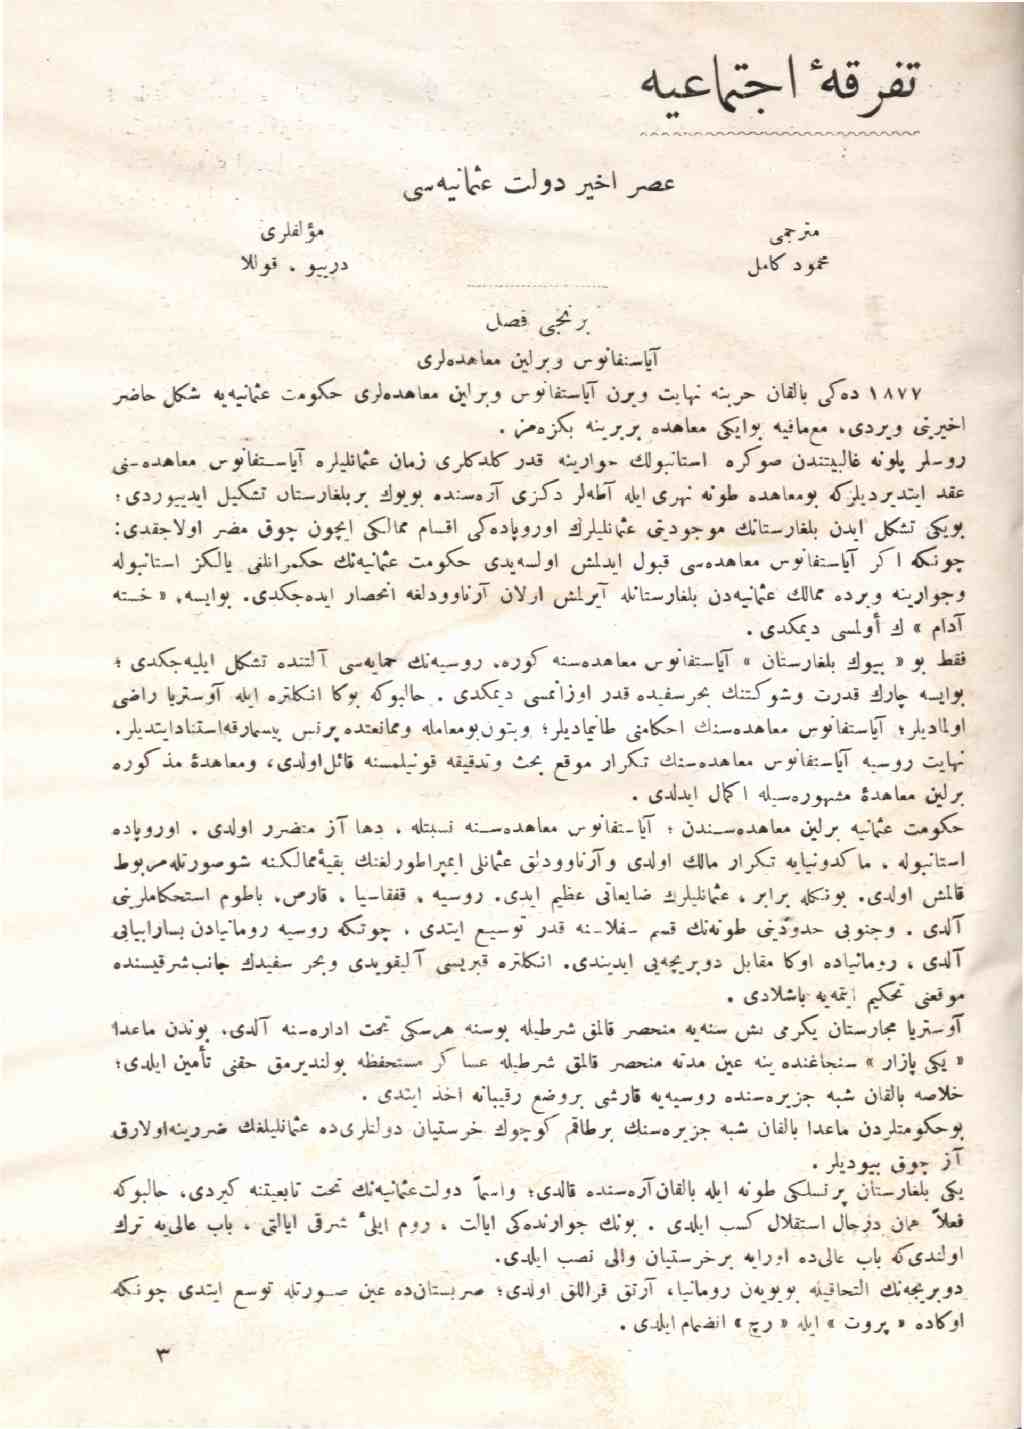 تفرقهٔ اجتماعیه
عصر اخیر دولت عثمانیه‌سی
مترجمی
محمود کامل
مؤلفلری
درییو . قوللا
برنجی فصل
آیاستفانوس وبرلین معاهده‌لری
۱۸۷۷ ده‌کی بالقان حربنه نهایت ویرن آیاستفانوس وبرلین معاهده‌لری حکومت عثمانیه‌یه شکل حاضر
اخیرینی ویردی، مع‌مافیه بوایکی معاهده بربرینه بکزه‌مز .
روسلر پلونه غالبیتندن صوکره استانبولك حوارینه قدر کلدکلری زمان عثمانلیلره آیاستفانوس معاهده‌سنی
عقد ایتدیردیلرکه بومعاهده طونه نهری ایله آطه‌لر دکزی آره‌سنده بویوك بربلغارستان تشکیل ایدییوردی؛
بویکی تشکل ایدن بلغارستانك موجودیتی عثمانلیلرك اوروپاده‌کی اقسام ممالکی ایچون چوق مضر اولاجقدی:
چونکه اکر آیاستفانوس معاهده‌سی قبول ایدلمش اولسه‌یدی حکومت عثمانیه‌نك حکمرانلغی یالکز استانبوله
وجوارینه وبرده ممالك عثمانیه‌دن بلغارستانله آیرلمش اولان آرناوودلغه انحصار ایده‌جکدی. بوایسه، « خسته
آدام » ك أولمسی دیمکدی .
فقط بو « بیوك بلغارستان » آیاستفانوس معاهده‌سنه کوره، روسیه‌نك حمایه‌سی آلتنده تشکل ایلیه‌جکدی ؛
بوایسه چارك قدرت وشوکتنك بحرسفیده قدر اوزانمسی دیمکدی . حالبوکه بوکا انکلتره ایله آوستریا راضی
اولمادیلر؛ آیاستفانوس معاهده‌سنك احکامنی طانیمادیلر؛ وبتون‌بومعامله وممانعتده پرنس بیسمارقه‌استنادایتدیلر.
نهایت روسیه آیاستفانوس معاهده‌سنك تکرار موقع بحث وتدقیقه قونیلمسنه قائل‌اولدی، ومعاهدهٔ مذکوره
برلین معاهدهٔ مشهوره‌سیله اکمال ایدلدی .
حکومت عثمانیه برلین معاهده‌سندن ؛ آیاستفانوس معاهده‌سنه نسبتله ، دها آز متضرر اولدی . اوروپاده
استانبوله ، ماکدونیایه تکرار مالك اولدی وآرناوودلق عثمانلی ایمپراطورلغنك بقیهٔ‌ممالکنه شوصورتله‌مربوط
قالمش اولدی. بونکله برابر ، عثمانلیلرك ضایعاتی عظیم ایدی. روسیه ، قفقاسیا ، قارص، باطوم استحکاملرینی
آلدی . وجنوبی حدودینی طونه‌نك قسم سفلاسنه قدر توسیع ایتدی ، چونکه روسیه رومانیادن بسارابیایی
آلدی ، رومانیاده اوکا مقابل دوبریچه‌یی ایدیندی. انکلتره قبریسی آلیقویدی وبحر سفیدك جانب‌شرقیسنده
موقعنی تحکیم ایتمه‌یه باشلادی .
آوستریا مجارستان یکرمی بش سنه‌یه منحصر قالمق شرطیله بوسنه هرسکی تحت اداره‌سنه آلدی، بوندن ماعدا
« یکی پازار » سنجاغنده ینه عین مدته منحصر قالمق شرطیله عساکر مستحفظه بولندیرمق حقنی تأمین ایلدی؛
خلاصه بالقان شبه جزیره‌سنده روسیه‌یه قارشی بروضع رقیبانه اخذ ایتدی .
بوحکومتلردن ماعدا بالقان شبه جزیره‌سنك برطاقم کوچوك خرستیان دولتلری‌ده عثمانلیلغك ضررینه‌اولارق
آز چوق بیودیلر .
یکی بلغارستان پرنسلکی طونه ایله بالقان‌آره‌سنده قالدی؛ واسماً دولت‌عثمانیه‌نك تحت تابعیتنه کیردی، حالبوکه
فعلاً همان درحال استقلال کسب ایلدی . بونك جوارنده‌کی ایالت ، روم ایلیٔ شرقی ایالتی ، باب عالی‌یه ترك
اولندی‌که باب عالی‌ده اورایه برخرستیان والی نصب ایلدی.
دوبریچه‌نك التحاقیله بویویه‌ن رومانیا، آرتق قراللق اولدی؛ صربستان‌ده عین صورتله توسع ایتدی چونکه
اوکاده « پیروت » ایله « رچ » انضمام ایلدی .
۳